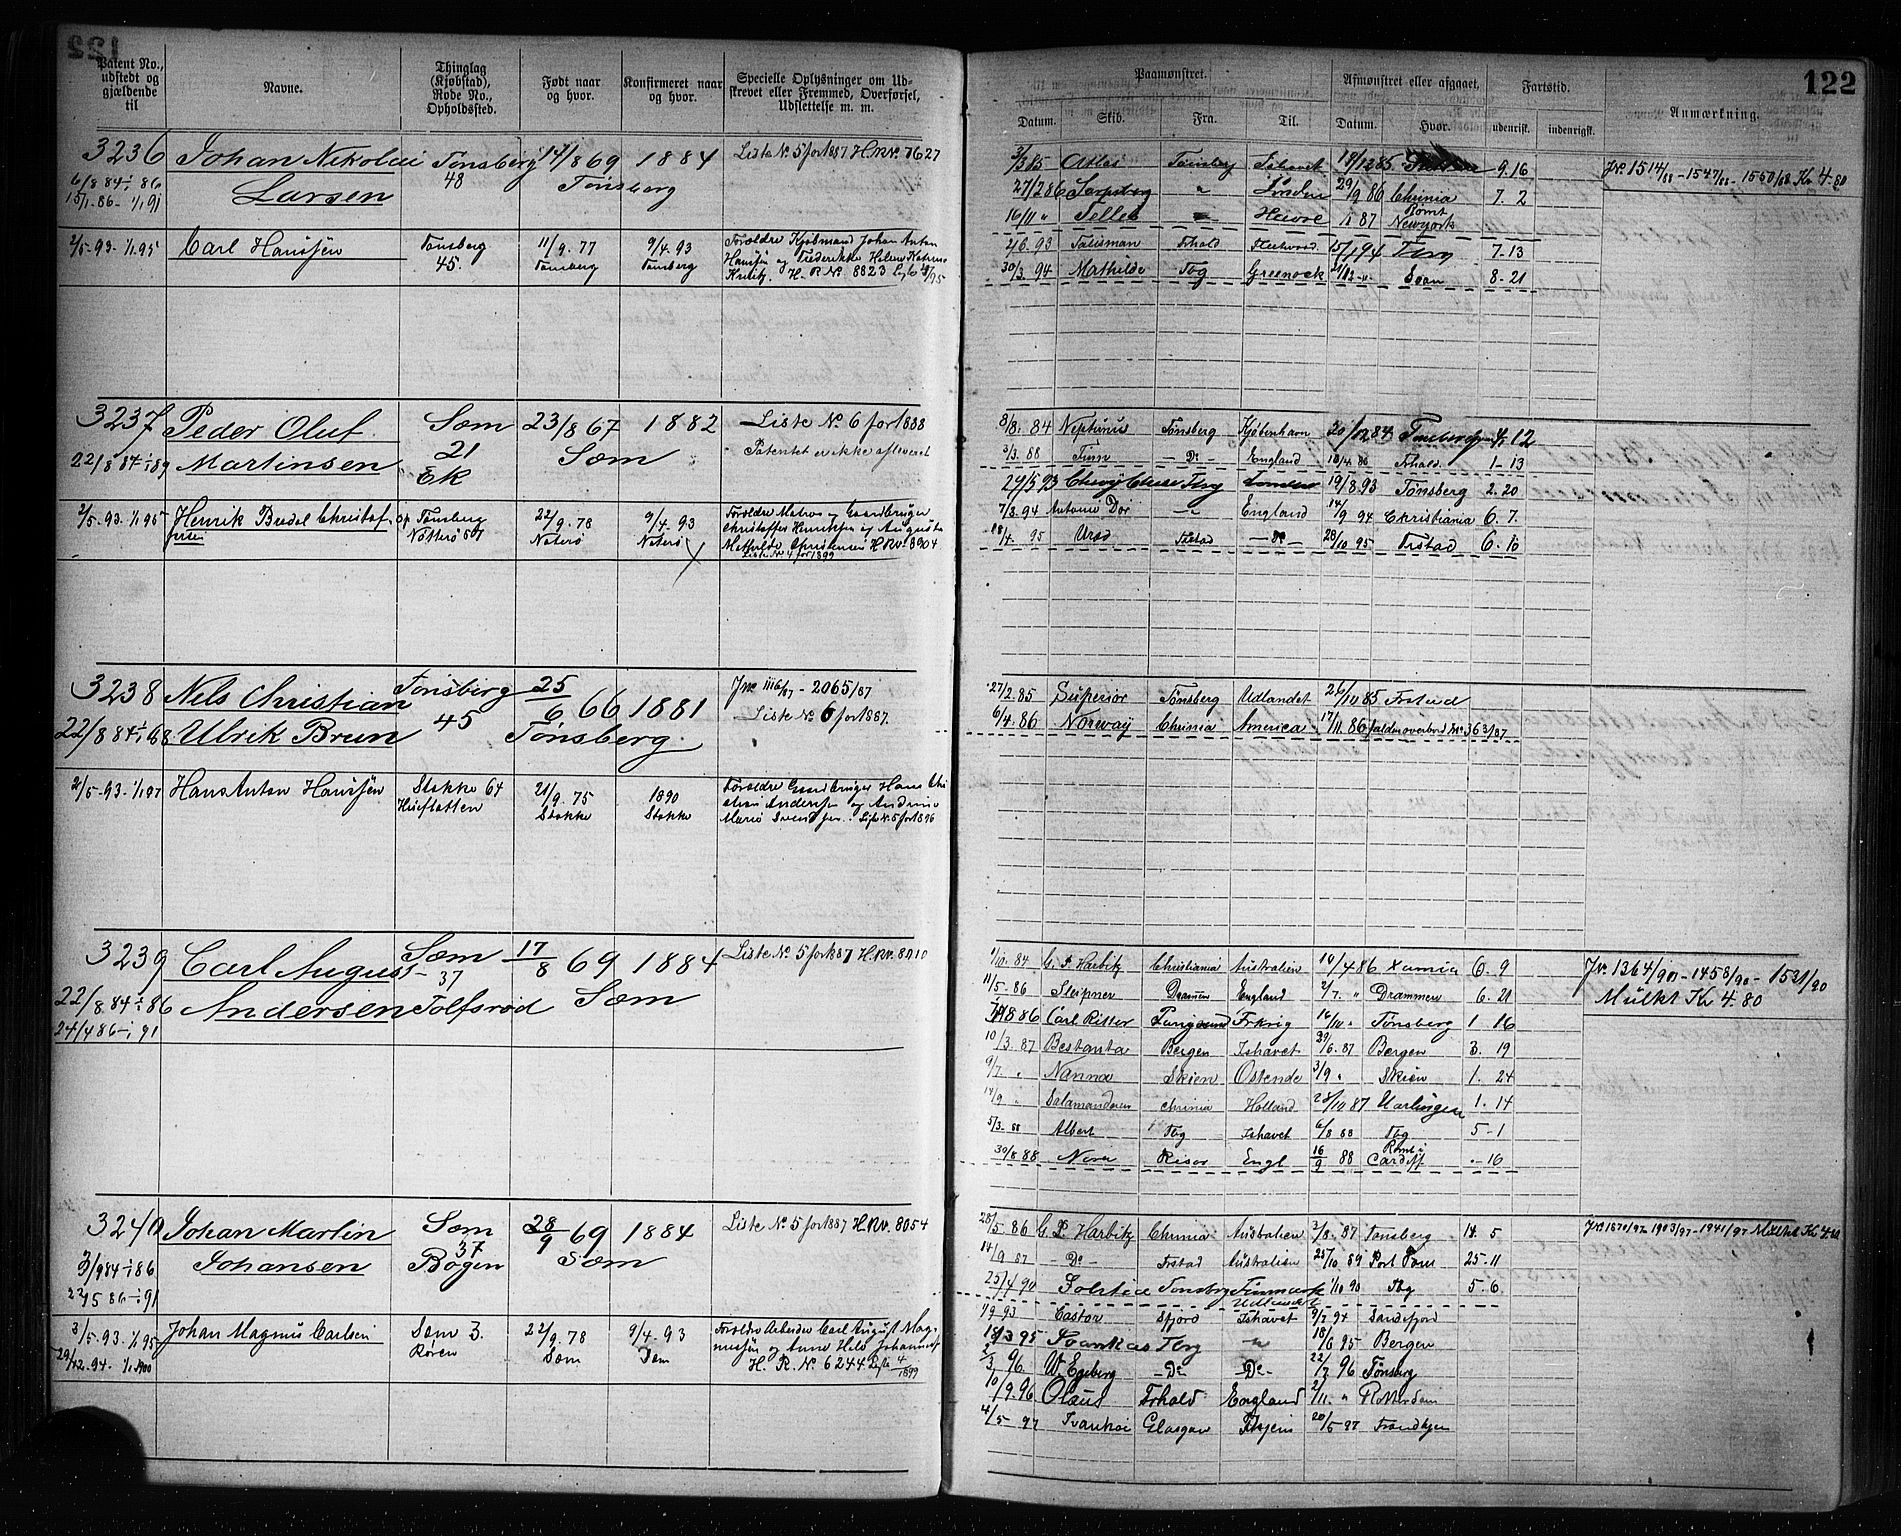 122
Patent No., udstedt og gjældende til
Navne.
Thinglag (Kjøbstad), Rode No., Opholdssted.
Født naar og hvor.
Konfirmeret naar og hvor.
Specielle Oplysninger om Udskrevet eller Fremmed, Overførsel, Udslettelse m. m.
Paamønstret.
Afmønstret eller afgaaet.
Fartstid.
Anmærkning.
Datum. Skib. Fra. Til. Datum. Hvor. udenrigs. indenrigs.
3236 Johan Nikolai Tønsberg 14/8 69 1884 Liste No 5 for 1887 H.R.No 7627
6/8 84 1/1 86 Larsen 48 Tønsberg
15/1 86 - 1/1 91
2/5-93-1/1 95 Carl Hanssen Tønsberg 11/9. 77 9/4. 93 Forældre Kjøbmand Johan Anton
45. Tønsberg Tønsberg Hanssen og Frederikke
H. R No 8823
3237 Peder Oluf Sæm 23/8 67 1882 Liste No 6 for 1888
22/8 84 1/1 89 Martinsen 21 Sæm Patentet er ikke afleveret
Ek
2/5-93-1/1 95 Henrik Bredal Christof- Tønsberg 22/9. 78 9/4. 93 Forældre Matros og Gaardbruger
fersen Nøtterø 57 Nøterø Nøterø Christoffer Henriksen og Augusta
Mathilde Christensen H.R.No 8904
Liste No 4 for 1899
3238 Nels Christian Tønsberg 25/6 66 1881 J.No 1116/87 - 2065/87
22/8 84 1/1 88 Ulrik Brun 45 Tønsberg Liste No 6 for 1887.
2/5-93-1/1 97 Hans Anton Hanssen Stokke 64 21/9. 75 1890 Forældre Gaardbruger Hans Chri
Stokke Stokke stian Andersen og Andrine
Marie Svendsen. Liste No 5 for 1896
3239 Carl August Sæm 17/8 69 1884 Liste No 5 for 1887 H.R.No 8010
22/8 84 1/1 86 Andersen 37 Tolfsrød Sæm
24/4 86 - 1/1 91
3240 Johan Martin Sæm 28/9 69 1884 Liste No 5 for 1887 H.R.No. 8054
3/9 84 - 1/1 86 Johansen 37 Bogen Sæm
22/5 86 - 1/1 91
3/5-93-1/1 95 Johan Magnus Carlsen Sæm 3. 22/9. 78 9/4. 93 Forældre Arbeider Carl August Mag-
29/12. 94. 1/1 1900 Røren Sæm Sem nussen og Anne Helo
H. R. No 6244 Liste 4/1899
3/3 85 Atlas Tønsberg Ishavet 19/12 85 9. 16 J.No 1514/88 - 1547/88 - 1560/88 Kr 4.80
27/2 86 Sarpsborg " London 29/9 86 Chrinia 7. 2
16/11 " Teller 87 Rømt Newyork
2/6. 93 Talisman Frhald Fleetwood 15/1 94 Tbrg 7-13
30/3. 94 Mathilde Tbg Greenock 21/12 " 8-21
8/8. 84 Neptunus Tønsberg Kjøbenhavn 20/12 84 Tønsberg 4. 12
3/3. 88 - Do - England 18/4. 88 Frhald. 1-13
27/5 93 Chevy Chase Tbrg London 19/8. 93 Tønsberg 2. 20
7/3. 94 Antonie Dor " England 14/9 94 Christiania 6. 7.
18/4. 95 Urad Frstad - Do - 28/10 95 Frstad 6. 10
27/2. 85 Superior Tønsberg Udlandet 26/10 85 Frstad
6/4. 86 Norway Chrinia America 17/11. 86 falden overbord J.No 363/87
1/10. 84 G. P Harbitz Christiania Australien 10/4 86 Xania 6. 9 J.No. 1364/90 - 1458/90 - 1531/90
11/5. 86 Sleipner Drammen England 2/7. " Drammen 6. 21 Mulkt Kr 4. 80
8 86 Carl Ritter Langesund Frkrig 16/10 " Tønsberg 1 16
10/3. 87 Bestanta Bergen Ishavet 29/6. 87 Bergen 3. 19
9/7. " Nanna Skien Ostende 3/9 " Skien 1. 24
14/9 " Salamanderen Chrinia Holland 28/10 87 Harlingen 1. 14
5/3. 88 Albert Tbg Ishavet 6/8 88 Tbg 5-1
30/8. 88 Nora Risør Engl 16/9 88 Rømt i Cardiff - 16
28/5. 86 G. P Harbitz Chrinia Australien 3/8. 87 Tønsberg 14. 5 J.No 1870/97 - 1903/97 - 1941/97 Mulkt Kr 4.80
14/9 87 - Do - Frstad Australien 25/10. 89 Port 25-11
25/4 90 Solstice Tønsberg Finmark 1/10 90 Tbg 5. 6.
1/9 93 Castor Sfjord Ishavet 9/2 94 Sandefjord
18/3 95 Tbrg " 18/6 95 Bergen
2/3 96. W Egeberg - Do - - Do - 22/7 96 Tønsberg
10/9. 96 Olaus Frhald England 2/11. " Rotterdam
4/5 - 97 Ivanhoi Glasgow 20/5-97